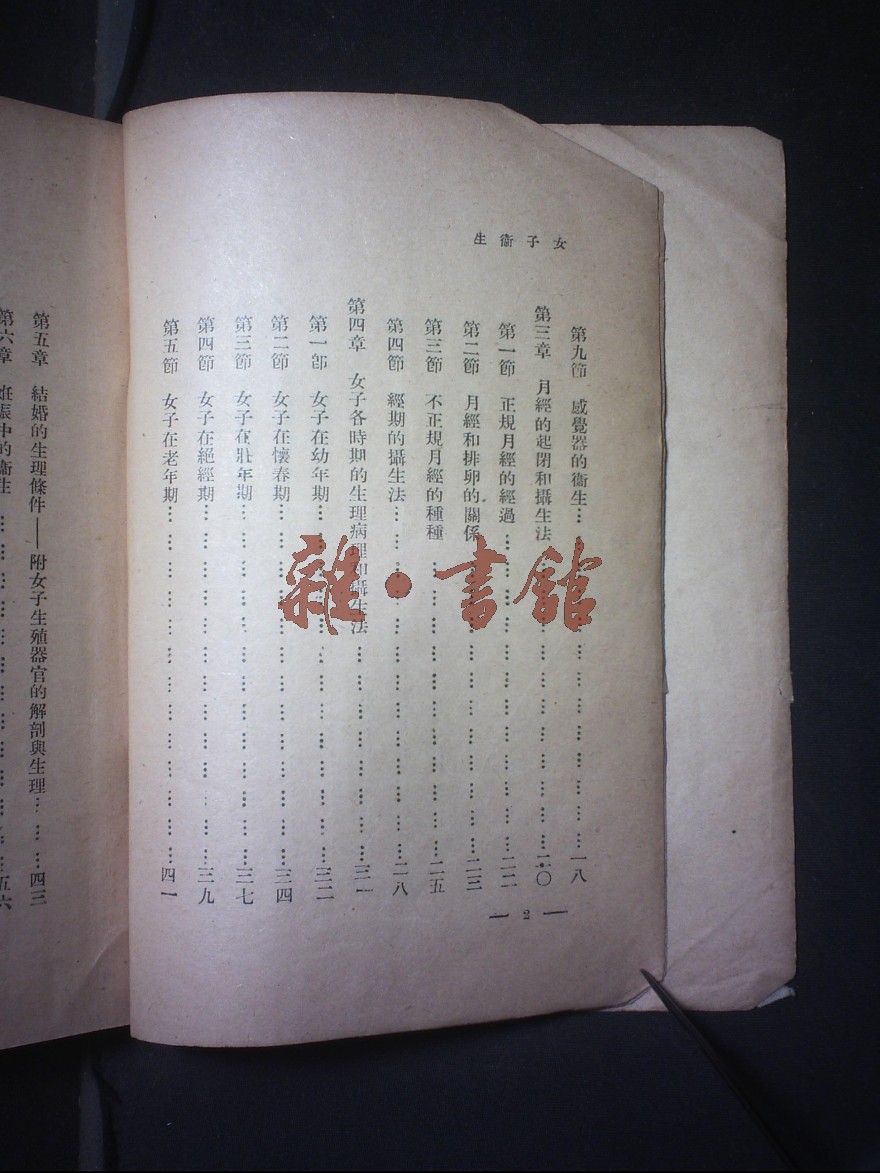 女子衞生
第九節 感覺器的衞生… … … … … … … … … … …一八
第三章 月經的起閉和攝生法 … … … … … … … … …二〇
第一節 正規月經的經過 … … … … … … … … … …二二
第二節 月經和排卵的關係 … … … … … … … … …二三
第三節 不正規月經的種種 … … … … … … … … …二五
第四節 經期的攝生法… … … … … … … … … … …二八
第四章 女子各時期的生理病理和攝生法 … … … … … … …三一
第一節 女子在幼年期… … … … … … … … … … …三二
第二節 女子在懷春期… … … … … … … … … … …三四
第三節 女子在壯年期… … … … … … … … … … …三七
第四節 女子在絕經期… … … … … … … … … … …三九
第五節 女子在老年期… … … … … … … … … … …四一
— 2 —
第五章 結婚的生理條件——附女子生殖器官的解剖與生理… … …四三
第六章 妊娠中的衞生 … … … … … … … … … …五六
雜·書館